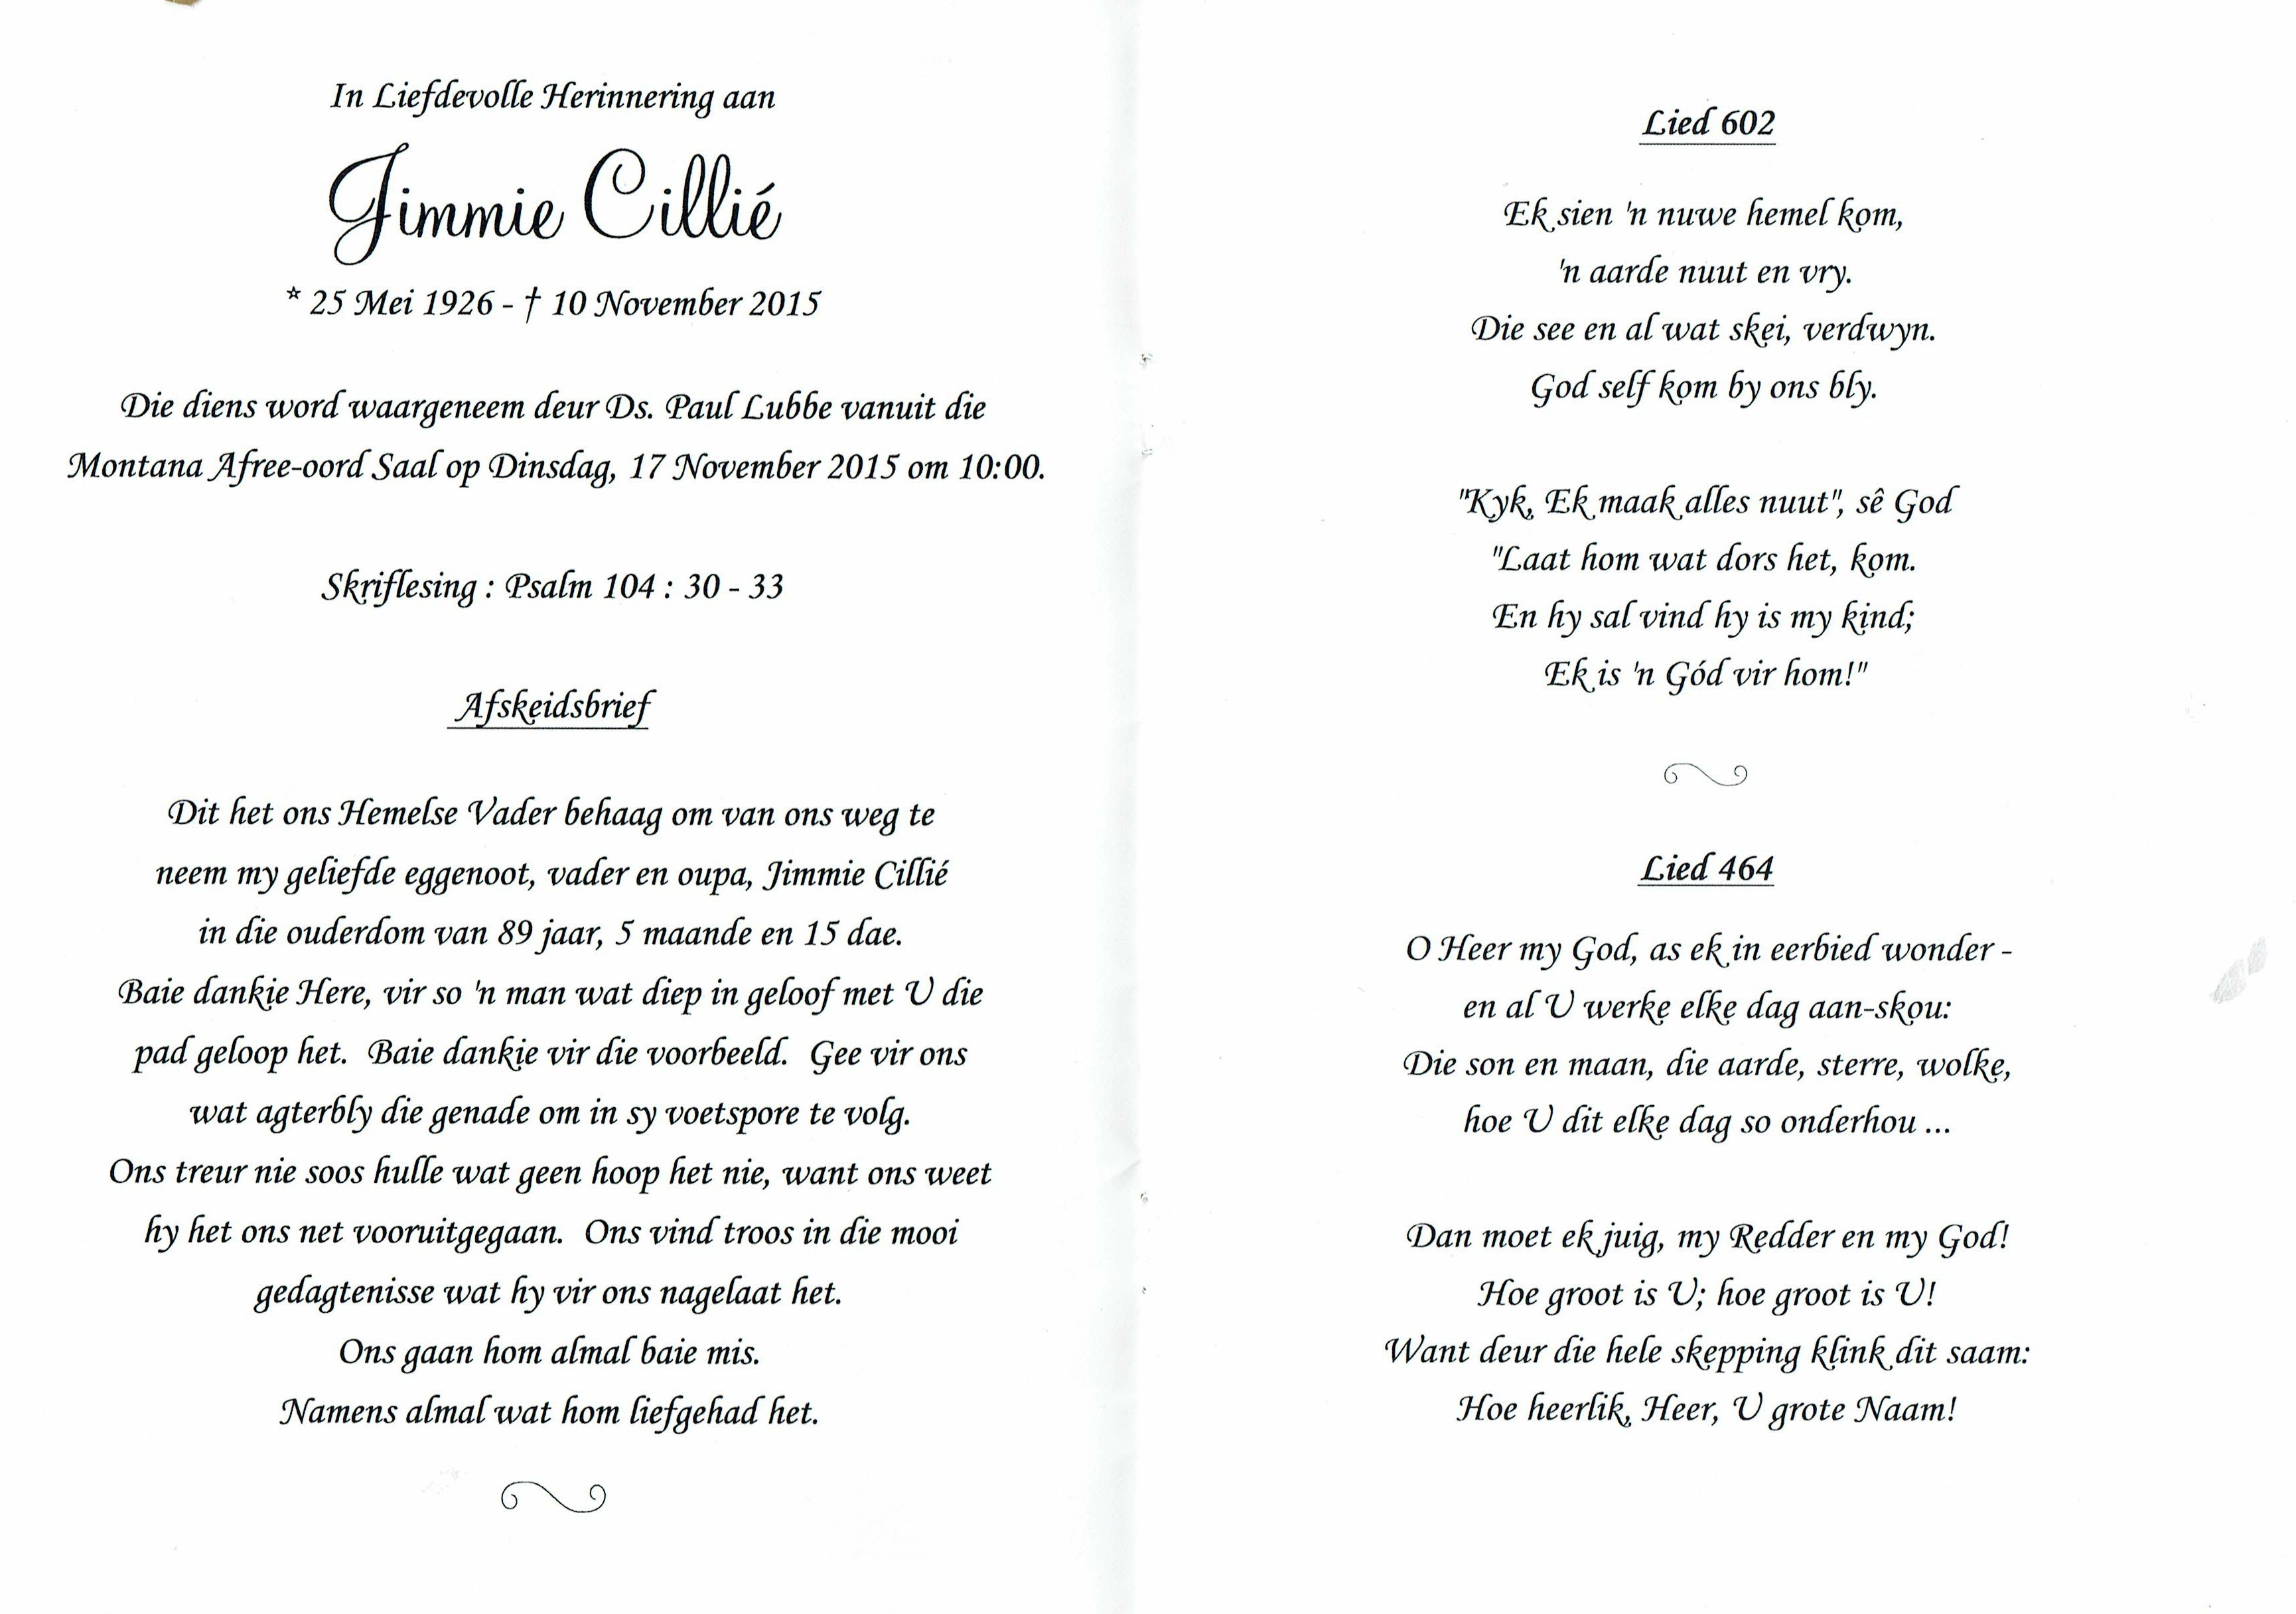 In Liefdevolle Herinnering aan
Jimmie Cillié
* 25 Mei 1926 - † 10 November 2015
Die diens word waargeneem deur Ds. Paul Lubbe vanuit die
Montana Afree-oord Saal op Dinsdag, 17 November 2015 om 10:00.
Skriflesing : Psalm 104 : 30 - 33
Afskeidsbrief
Dit het ons Hemelse Vader behaag om van ons weg te
neem my geliefde eggenoot, vader en oupa, Jimmie Cillié
in die ouderdom van 89 jaar, 5 maande en 15 dae.
Baie dankie Here, vir so 'n man wat diep in geloof met U die
pad geloop het.  Baie dankie vir die voorbeeld.  Gee vir ons
wat agterbly die genade om in sy voetspore te volg.
Ons treur nie soos hulle wat geen hoop het nie, want ons weet
hy het ons net vooruitgegaan.  Ons vind troos in die mooi
gedagtenisse wat hy vir ons nagelaat het.
Ons gaan hom almal baie mis.
Namens almal wat hom liefgehad het.
Lied 602
Ek sien 'n nuwe hemel kom,
'n aarde nuut en vry.
Die see en al wat skei, verdwyn.
God self kom by ons bly.
"Kyk, Ek maak alles nuut", sê God
"Laat hom wat dors het, kom.
En hy sal vind hy is my kind;
Ek is 'n Gód vir hom!"
Lied 464
O Heer my God, as ek in eerbied wonder -
en al U werke elke dag aan-skou:
Die son en maan, die aarde, sterre, wolke,
hoe U dit elke dag so onderhou ...
Dan moet ek juig, my Redder en my God!
Hoe groot is U; hoe groot is U!
Want deur die hele skepping klink dit saam:
Hoe heerlik, Heer, U grote Naam!